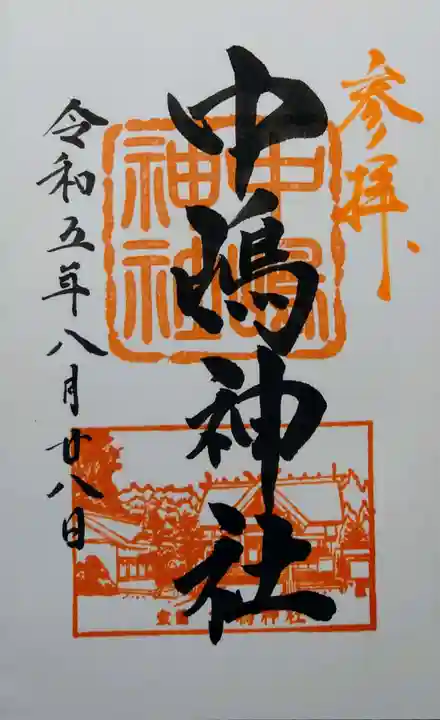 参拝
中嶋神社
中嶋神社
令和五年八月廿八日